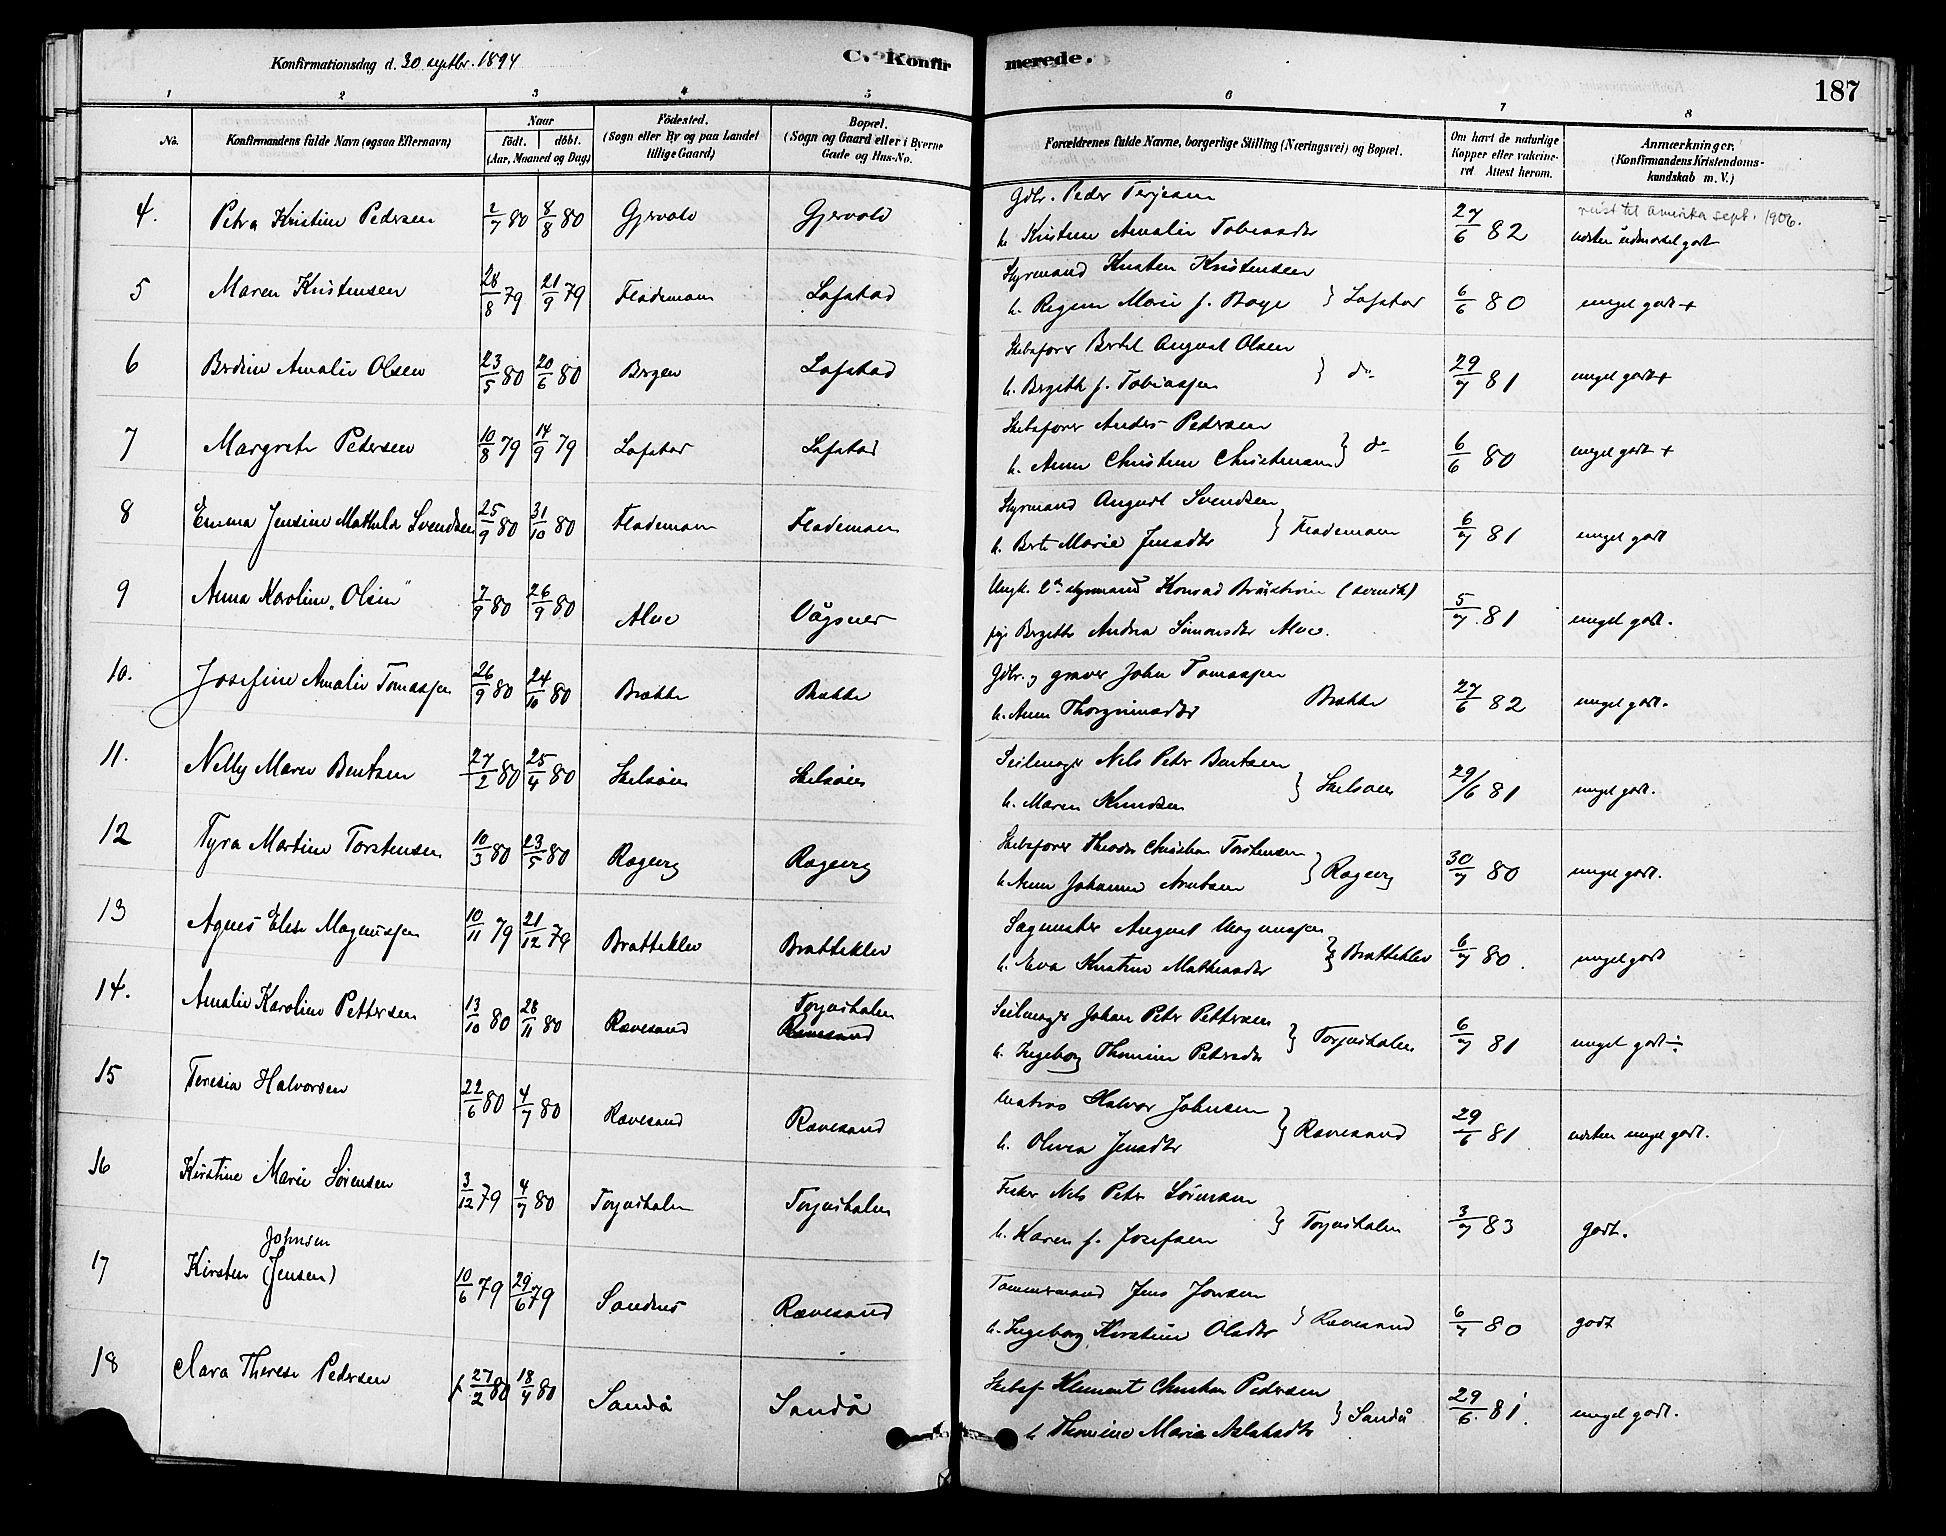 Konfirmationsdag d. 30 septbr. 1894 C. Konfirmerede. 187
1 2 3 4 5 6 7 8
No. Konfirmandens fulde Navn (ogsaa Efternavn) Naar født. døbt. (Aar, Maaned og Dag) Fødested. (Sogn eller By og paa Landet tillige Gaard) Bopæl. (Sogn og Gaard eller i Byerne Gade og Hus-No. Forældrenes fulde Navne, borgerlige Stilling (Næringsvei) og Bopæl. Om havt de naturlige Kopper eller vakcineret Attest herom. Anmærkninger. (Konfirmandens Kristendomskundskab m. V.)
4. Petra Kristine Pedersen 2/7 80 8/8 80 Gjervold Gjervold Gdbr. Peder Terjesen
h. Kristine Amalie Tobiasdtr 27/6 82 reist til Amerika sept. 1906.
næsten udmærket godt
5 Maren Kristensen 28/8 79 21/9 79 Flademoen Lofstad Styrmand Knuten Kristensen
h. Regine Marie f. Boye } Lofstad 6/6 80 meget godt +
6 Berdine Amalie Olsen 23/5 80 20/6 80 Bergen Lofstad Skibsfører Bertel August Olsen
h. Bergith f. Tobiassen } do 29/7 81 meget godt +
7 Margrete Pedersen 10/8 79 14/9 79 Lofstad Lofstad Skibsfører Anders Pedersen
h. Anne Christine Christensen } do 6/6 80 meget godt +
8 Emma Jensine Mathilde Svendsen 25/9 80 31/10 80 Flademoen Flademoen Styrmand August Svendsen
h. Berte Marie Jensdtr } Flademoen 6/7 81 meget godt
9 Anna Karoline "Olsen" 7/9 80 26/9 80 Alve Vågsnes Ungk. 2den styrmand Konrad (svensk)
pige Bergitte Andrea Simonsdtr Alve. 5/7 81 meget godt.
10. Josefine Amalie Tomassen 26/9 80 24/10 80 Brække Brække Gdbr. og graver John Tomassen
h. Anne Thorgrimsdtr Brække 27/6 82 meget godt.
11. Nelly Marie Bentsen 27/2 80 25/4 80 Skilsøen Skilsøen Seilmager Nils Peter Bentsen
h. Maren Knudsen } Skilsøen 29/6 81 meget godt.
12 Tyra Martine Torstensen 10/3 80 23/5 80 Rægevig Rægevig Skibsfører Theodor Christian Torstensen
h. Anne Johanne Arntsen } Rægevig 30/7 80 meget godt.
13 Agnes Elise Magnussen 10/11 79 21/12 79 Bratteklev Bratteklev Sagmester August Magnussen
h. Eva Kristine Mathiasdtr } Bratteklev 6/7 80. meget godt
14. Amalie Karoline Pettersen 13/10 80 28/11 80 Rævesand Torjusholm
Rævesand Seilmager Johan Peter Pettersen
h. Ingeborg Thomine Petersdtr } Torjusholm 6/7 81 meget godt ÷
15 Teresia Halvorsen 22/6 80 4/7 80 Rævesand Rævesand Matros Halvor Johnsen
h. Olivia Jensdtr } Rævesand 29/6 81 næsten meget godt.
16 Kirstine Marie Sørensen 3/12 79 4/7 80 Torjusholm Torjusholm Fisker Nils Peter Sørensen
h. Karen f. Josefsen } Torjusholm 3/7 83 godt.
17 Johnsen
Kirsten (Jensen) 10/6 79 29/6 79 Sandnes Rævesand Tømmermand Jens Jonsen
h. Ingeborg Kirstine Olsdtr } Rævesand 6/7 80 godt
18 Clara Therese Pedersen f 27/2 80 18/4 80 Sandø Sandø Skibsf. Klement Christian Pedersen
h Thomine Marie Aslaksdtr } Sandø 29/6 81. meget godt.